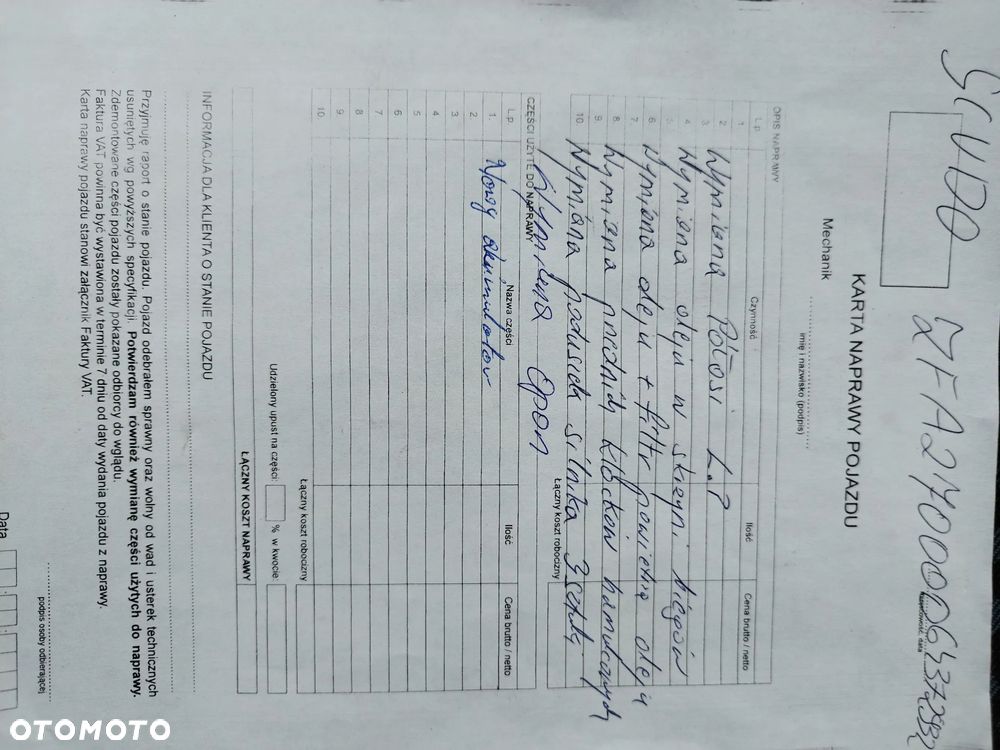 SCUDO ZFA27000064372932
miejscowość, data
KARTA NAPRAWY POJAZDU
Mechanik
imię i nazwisko (podpis)
OPIS NAPRAWY
L.p. Czynność Ilość Cena brutto / netto
1
2 Wymiana Półosi L.P
3
4 Wymiena oleju w skrzyni biegów
5
6 Wymiana oleju + filtr powietrza oleju
7
8 Wymiana przednich klocków hamulcowych
9
10 Wymiana poduszek silnika 3 sztuky
Łączny koszt robocizny
Wymiana Opon
CZĘŚCI UŻYTE DO NAPRAWY
L.p. Nazwa części Ilość Cena brutto / netto
1. Nowy akumulator
2
3
4
5
6
7
8
9
10
Łączny koszt robocizny
Udzielony upust na części: % w kwocie:
ŁĄCZNY KOSZT NAPRAWY
INFORMACJA DLA KLIENTA O STANIE POJAZDU
Przyjmuję raport o stanie pojazdu. Pojazd odebrałem sprawny oraz wolny od wad i usterek technicznych
usuniętych wg powyższych specyfikacji. Potwierdzam również wymianę części użytych do naprawy.
Zdemontowane części pojazdu zostały pokazane odbiorcy do wglądu.
Faktura VAT powinna być wystawiona w terminie 7 dni od daty wydania pojazdu z naprawy.
Karta naprawy pojazdu stanowi załącznik Faktury VAT.
podpis osoby odbierającej
Data
OTOMOTO